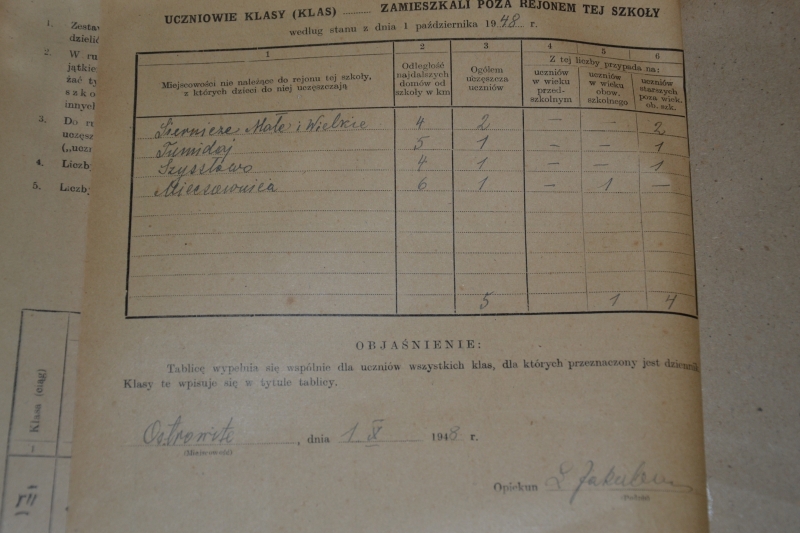 UCZNIOWIE KLASY (KLAS) .......... ZAMIESZKALI POZA REJONEM TEJ SZKOŁY
według stanu z dnia 1 października 1948 r.
1 2 3 4 5 6
Miejscowości nie należące do rejonu tej szkoły,
z których dzieci do niej uczęszczają
Odległość
najdalszych
domów od
szkoły w km
Ogółem
uczęszcza
uczniów
Z tej liczby przypada na:
uczniów
w wieku
przed-
szkolnym
uczniów
w wieku
obow.
szkolnego
uczniów
starszych
poza wiek.
ob. szk.
Siernicze Małe i Wielkie 4 2 — — 2
Tumidaj 5 1 — — 1
Szyszłowo 4 1 — — 1
Mieczownica 6 1 — 1 —
5 1 4
OBJAŚNIENIE:
Tablicę wypełnia się wspólnie dla uczniów wszystkich klas, dla których przeznaczony jest dziennik
Klasy te wpisuje się w tytule tablicy.
Ostrowite, dnia 1 X 1948 r.
(Miejscowość)
Opiekun
1.
dzielić
2. W
szko
innych
3. Do
4. Liczby
5. Liczby
Klasa (ciąg)
1
VII